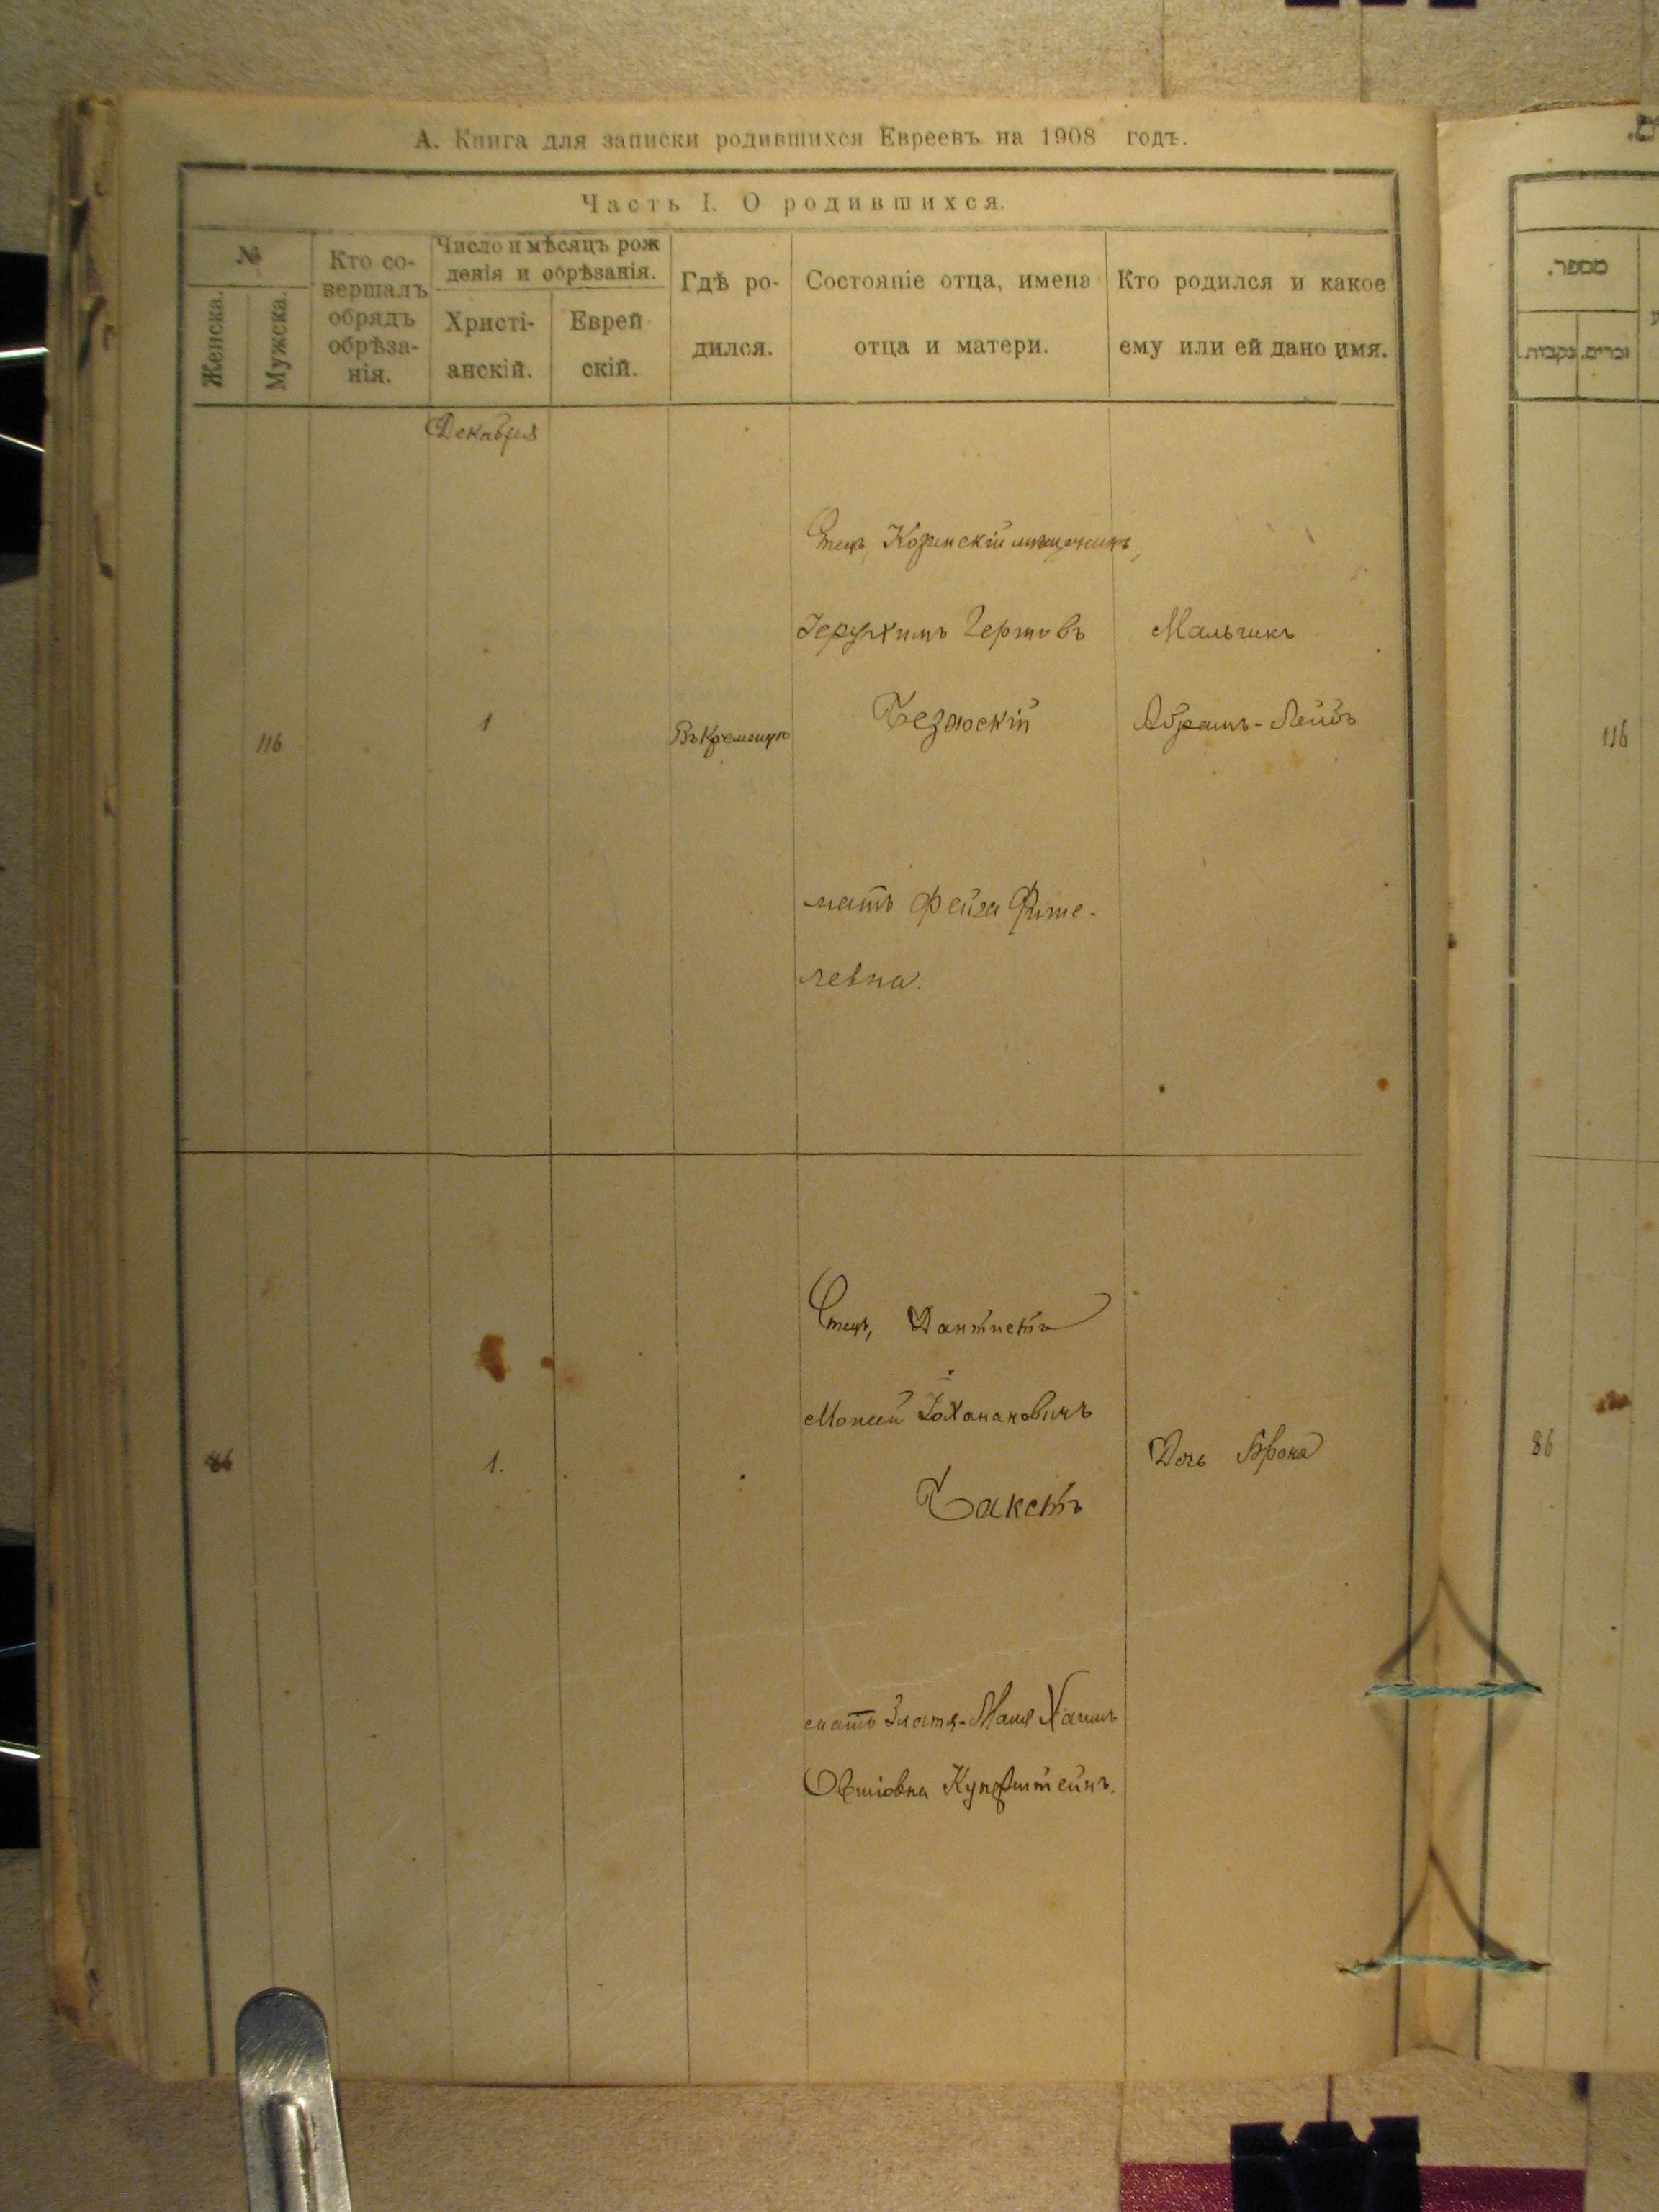 А. Книга для записки родившихся Евреевъ на 1908 годъ.
Часть I. О родившихся.
№
Женска.
Мужска.
Кто со-
вершалъ
обрядъ
обрѣза-
нія.
Число и мѣсяцъ рож
денія и обрѣзанія.
Христі-
анскій.
Еврей
скій.
Гдѣ ро-
дился.
Состояніе отца, имена
отца и матери.
Кто родился и какое
ему или ей дано имя.
Декабря
116
1
Въ Кременчугѣ
Отецъ, мѣщанинъ,
Іерухимъ
Безюскій
мать Фейга
левна.
Мальчикъ
Абрамъ-Лейбъ
86
1.
Отецъ, Дантистъ
Моисей Іоханановичъ
Бакстъ
мать Злата-Маша Хаимъ
Овшіовна Купфштейнъ.
ДочьБроня
מספר.
זכרים.
נקבות.
116
86